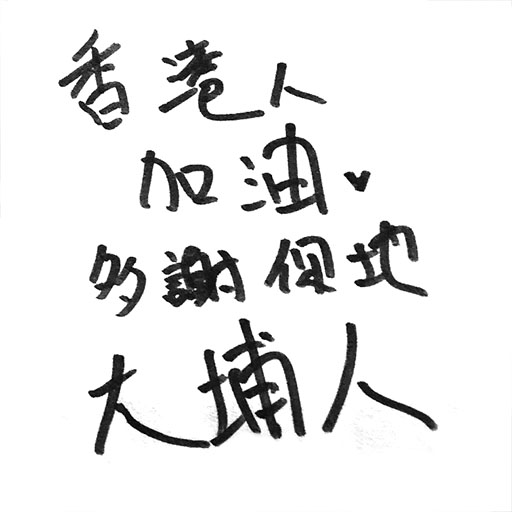 香港人
加油
多謝你地
大埔人